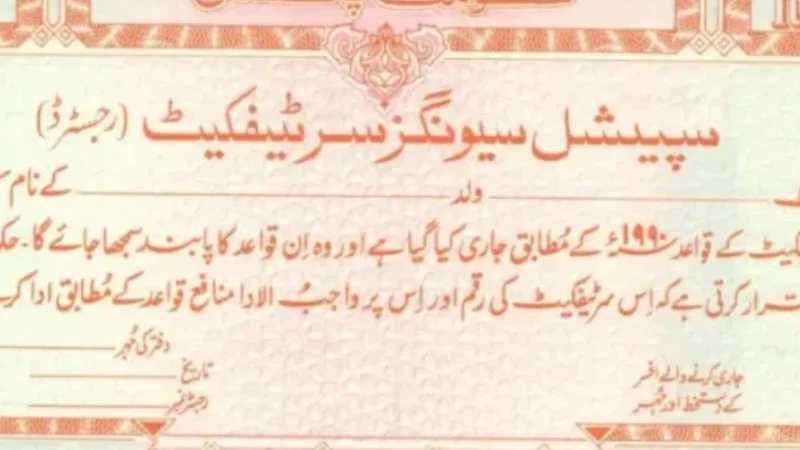 سپیشل سیونگز سرٹیفکیٹ (رجسٹرڈ)
ولد کے نام
کے قواعد ۱۹۹۰ء کے مُطابق جاری کیا گیا ہے اور وہ اِن قواعد کا پابند سمجھا جائے گا۔
کرتی ہے کہ اِس سرٹیفکیٹ کی رقم اور اِس پر واجبُ الادا منافع قواعد کے مُطابق ادا
دفتر کی مُہر
جاری کرنے والے افسر
تاریخ
کے دستخط اور مُہر
رجسٹر نمبر